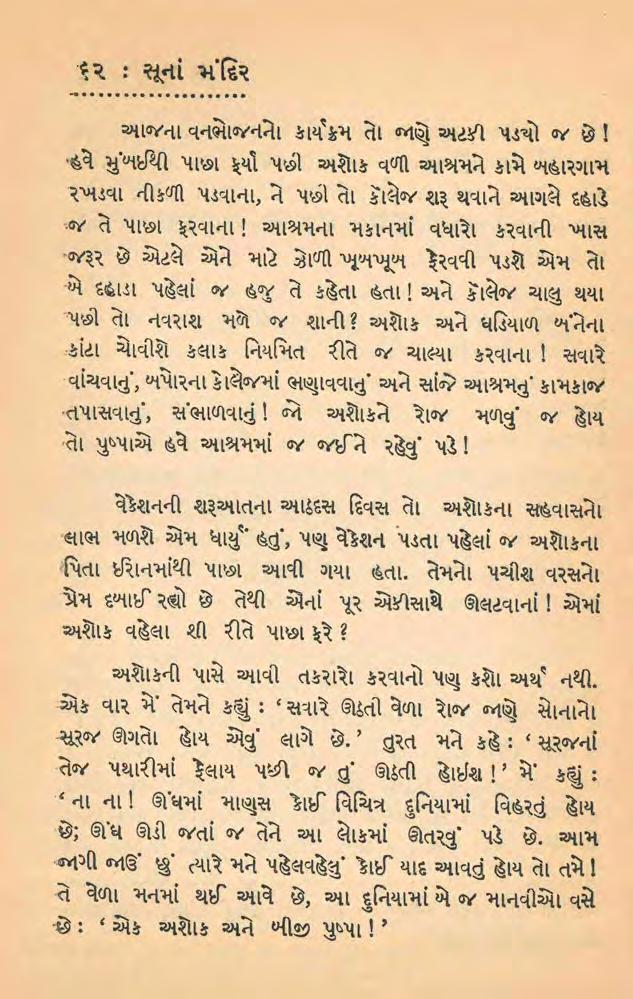 ૬૨ : સૂનાં મંદિર
આજના વનભોજનનો કાર્યક્રમ તો જાણે અટકી પડયો જ છે !
હવે મુંબઈથી પાછા ફર્યા પછી અશોક વળી આશ્રમને કામે બહારગામ
રખડવા નીકળી પડવાના, ને પછી તો કૉલેજ શરૂ થવાને આગલે દહાડે
જ તે પાછા ફરવાના ! આશ્રમના મકાનમાં વધારો કરવાની ખાસ
જરૂર છે એટલે એને માટે ઝોળી ખૂબખૂબ ફેરવવી પડશે એમ તો
બે દહાડા પહેલાં જ હજુ તે કહેતા હતા ! અને કૉલેજ ચાલુ થયા
પછી તો નવરાશ મળે જ શાની ? અશોક અને ઘડિયાળ બંનેના
કાંટા ચોવીશે કલાક નિયમિત રીતે જ ચાલ્યા કરવાના ! સવારે
વાંચવાનું, બપોરના કોલેજમાં ભણાવવાનું અને સાંજે આશ્રમનું કામકાજ
તપાસવાનું, સંભાળવાનું ! જો અશોકને રોજ મળવું જ હોય
તો પુષ્પાએ હવે આશ્રમમાં જ જઈને રહેવું પડે !
વેકેશનની શરૂઆતના આઠદસ દિવસ તો અશોકના સહવાસનો
લાભ મળશે એમ ધાર્યું હતું, પણ વેકેશન પડતા પહેલાં જ અશોકના
પિતા ઈરાનમાંથી પાછા આવી ગયા હતા. તેમનો પચીશ વરસનો
પ્રેમ દબાઈ રહ્યો છે તેથી એનાં પૂર એકીસાથે ઊલટવાનાં ! એમાં
અશોક વહેલા શી રીતે પાછા ફરે ?
અશોકની પાસે આવી તકરારો કરવાનો પણ કશો અર્થ નથી.
એક વાર મેં તેમને કહ્યું : ‘સવારે ઊઠતી વેળા રોજ જાણે સોનાનો
સૂરજ ઊગતો હોય એવું લાગે છે.’ તુરત મને કહે : ‘સૂરજનાં
તેજ પથારીમાં ફેલાય પછી જ તું ઊઠતી હોઈશ !’ મેં કહ્યું :
‘ના ના ! ઊંઘમાં માણસ કોઈ વિચિત્ર દુનિયામાં વિહરતું હોય
છે; ઊંઘ ઊડી જતાં જ તેને આ લોકમાં ઊતરવું પડે છે. આમ
જાગી જાઉં છું ત્યારે મને પહેલવહેલું કોઈ યાદ આવતું હોય તો તમે !
તે વેળા મનમાં થઈ આવે છે, આ દુનિયામાં બે જ માનવીઓ વસે
છે : ‘એક અશોક અને બીજી પુષ્પા !’